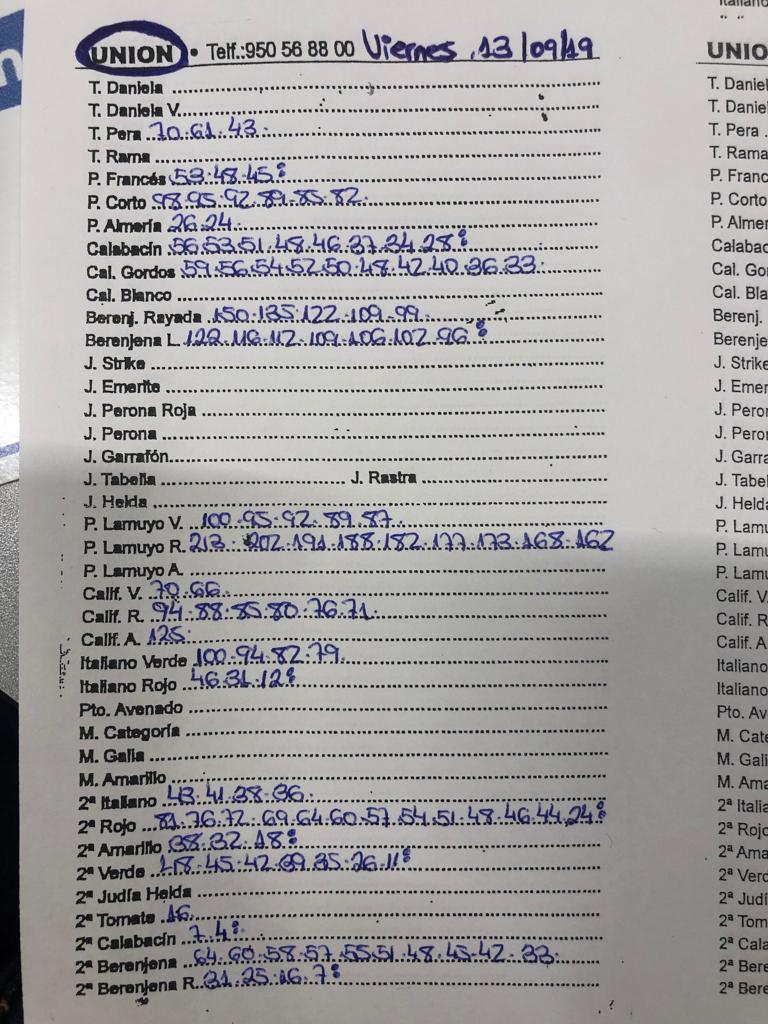 UNION • Telf.:950 56 88 00 Viernes 13/09/19
T. Daniela
T. Daniela V.
T. Pera 70.61.43.
T. Rama
P. Francés 53.48.45
P. Corto 98.95.92.89.85.82.
P. Almería 26.24.
Calabacín 56.53.51.48.46.37.34.28
Cal. Gordos 59.56.54.52.50.48.42.40.36.33.
Cal. Blanco
Berenj. Rayada 150.135.122.109.99.
Berenjena L. 122.116.112.109.106.102.96
J. Strike
J. Emerite
J. Perona Roja
J. Perona
J. Garrafón
J. Tabella J. Rastra
J. Helda
P. Lamuyo V. 100.95.92.89.87.
P. Lamuyo R. 213.202.191.188.182.177.173.168.162
P. Lamuyo A.
Calif. V. 70.66.
Calif. R. 94.88.85.80.76.71.
Calif. A. 125.
Italiano Verde 100.94.82.79.
Italiano Rojo 46.31.12
Pto. Avenado
M. Categoría
M. Galia
M. Amarillo
2ª Italiano 43.41.38.36.
2ª Rojo 81.76.72.69.64.60.57.54.51.48.46.44.24
2ª Amarillo 38.32.18
2ª Verde 48.45.42.39.35.26.11
2ª Judía Helda
2ª Tomate 16.
2ª Calabacín 7.4
2ª Berenjena 64.60.58.57.55.51.48.45.42.33.
2ª Berenjena R. 31.25.16.7
UNION
T. Daniel
T. Danie
T. Pera
T. Rama
P. Franc
P. Corto
P. Almer
Calabac
Cal. Go
Cal. Bla
Berenj.
Berenje
J. Strike
J. Emer
J. Pero
J. Pero
J. Garra
J. Tabel
J. Helda
P. Lamu
P. Lamu
P. Lamu
Calif. V.
Calif. R
Calif. A
Italiano
Italiano
Pto. Av
M. Cate
M. Gali
M. Ama
2ª Italia
2ª Rojo
2ª Ama
2ª Verd
2ª Judí
2ª Tom
2ª Cala
2ª Bere
2ª Bere